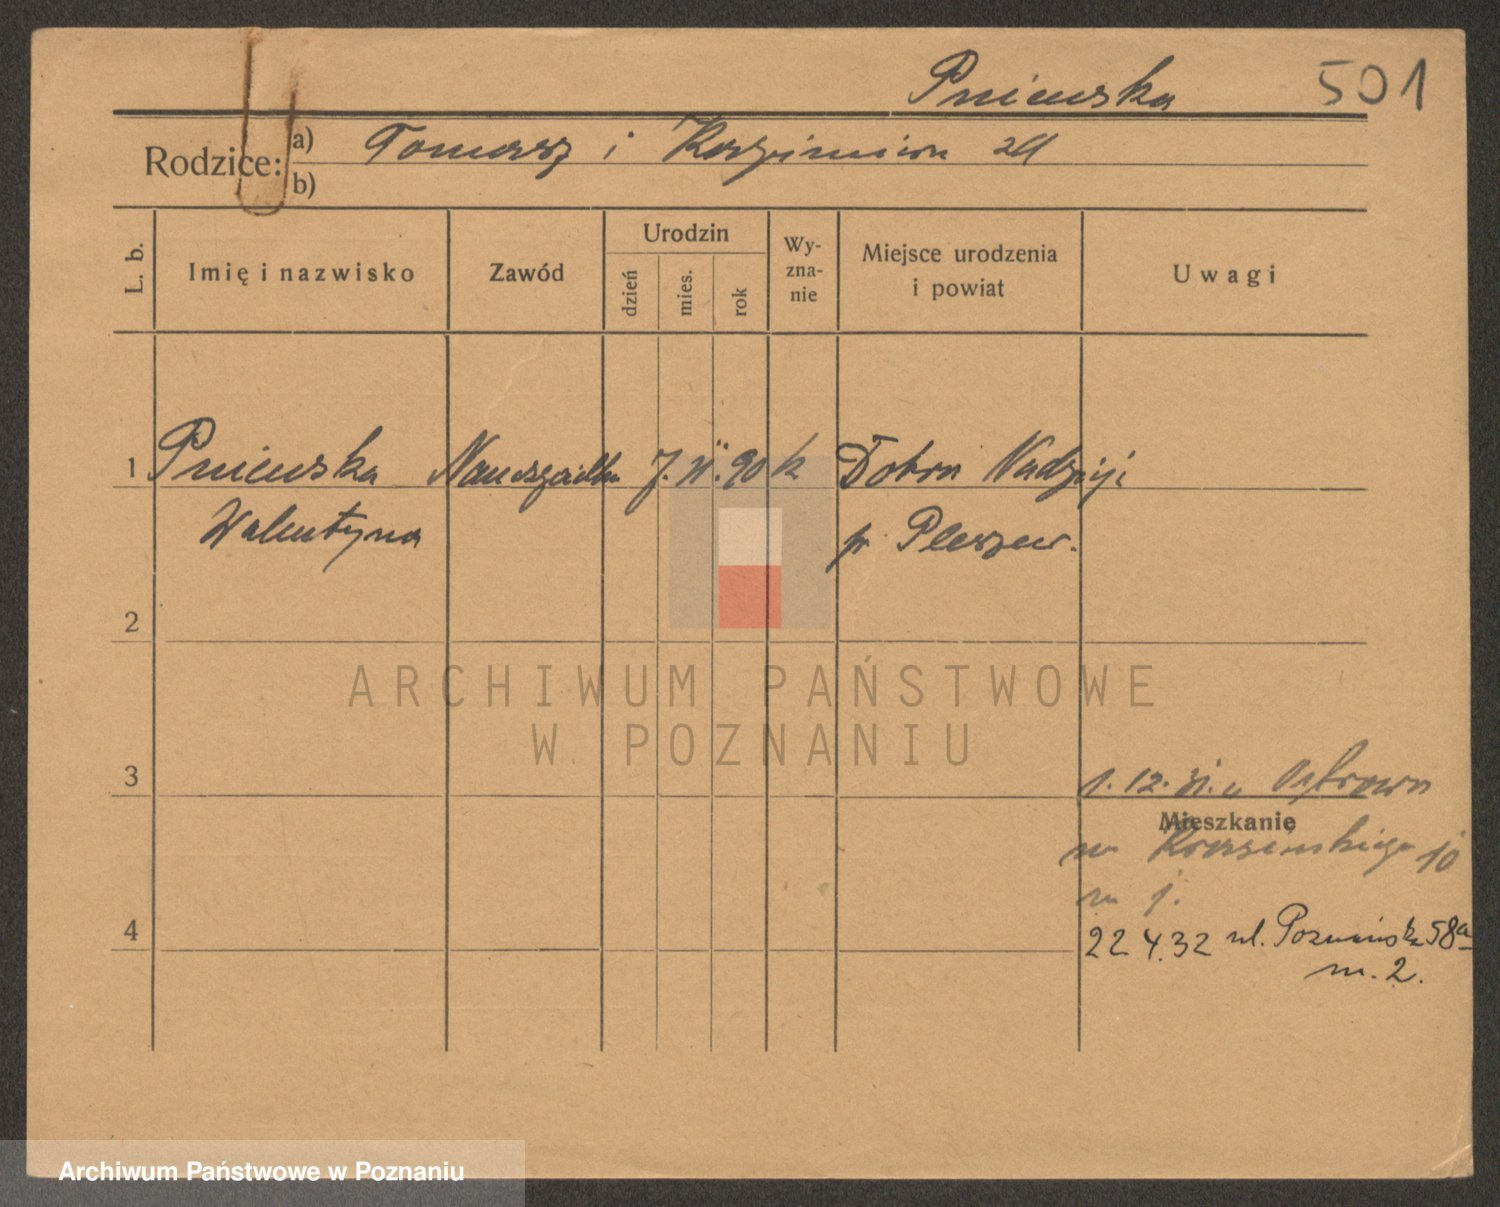 Pniewska 501
Rodzice: a) Tomasz i Kazimiera
b)
L. b. Imię i nazwisko Zawód Urodzin dzień mies. rok Wy-
zna-
nie Miejsce urodzenia
i powiat Uwagi
1 Pniewska Nauczycielka 7. II. 90 k Dobra Nadzieja
Walentyna p. Pleszew.
2
ARCHIWUM PAŃSTWOWE
W POZNANIU
3 1. 12. 31. Ostrowa
Mieszkanie
10
m
4 22 4.32 ul. Poznańska 58a
m. 2.
Archiwum Państwowe w Poznaniu